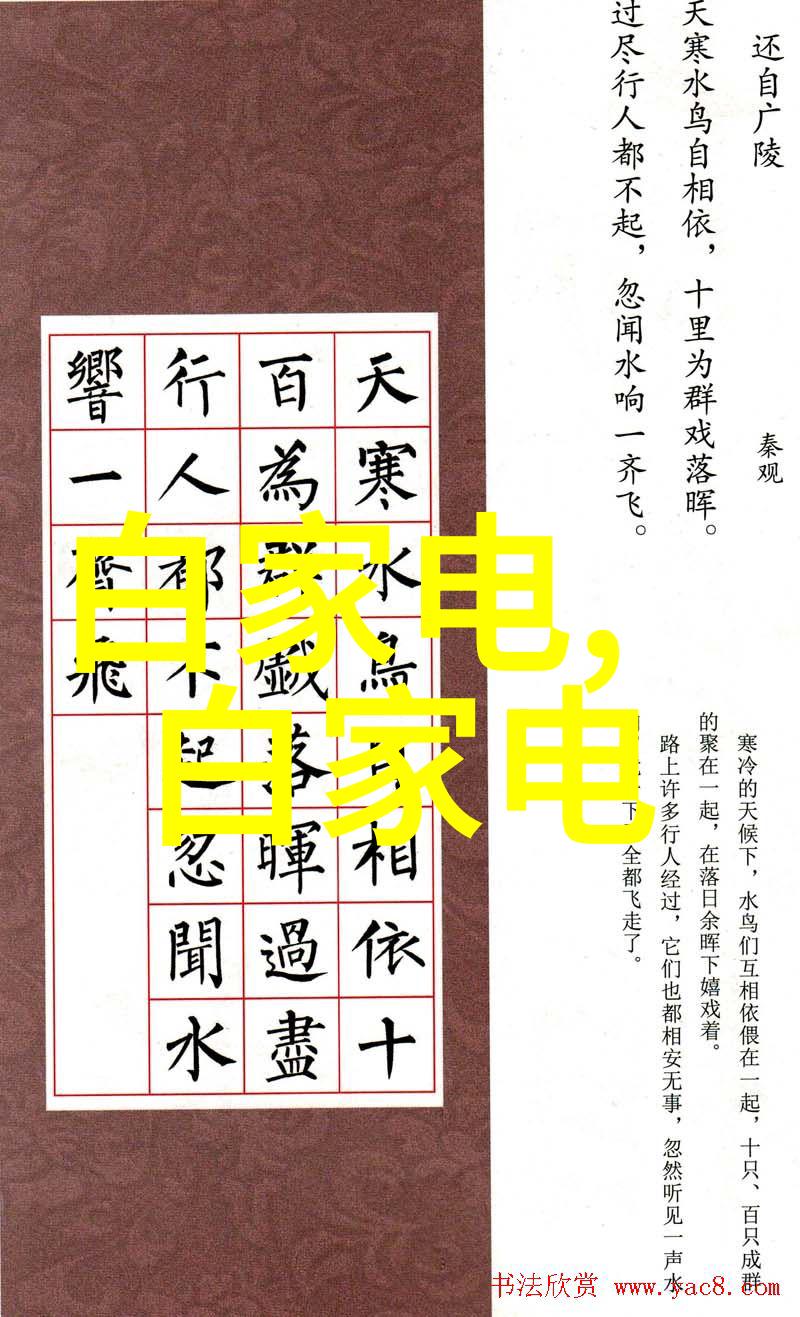 还自广陵
秦观
天寒水鸟自相依，十里为群戏落晖。
过尽行人都不起，忽闻水响一齐飞。
寒冷的天候下，水鸟们互相依偎在一起，十只、百只成群
的聚在一起，在落日余晖下嬉戏着。
路上许多行人经过，它们也都相安无事，忽然听见一声水
下全都飞走了。
天寒水鳥自相依十
百為群戲落暉過盡
行人都不起忽聞水
響一齊飛
自家电,
自家电
书法欣赏 www.yac8.com